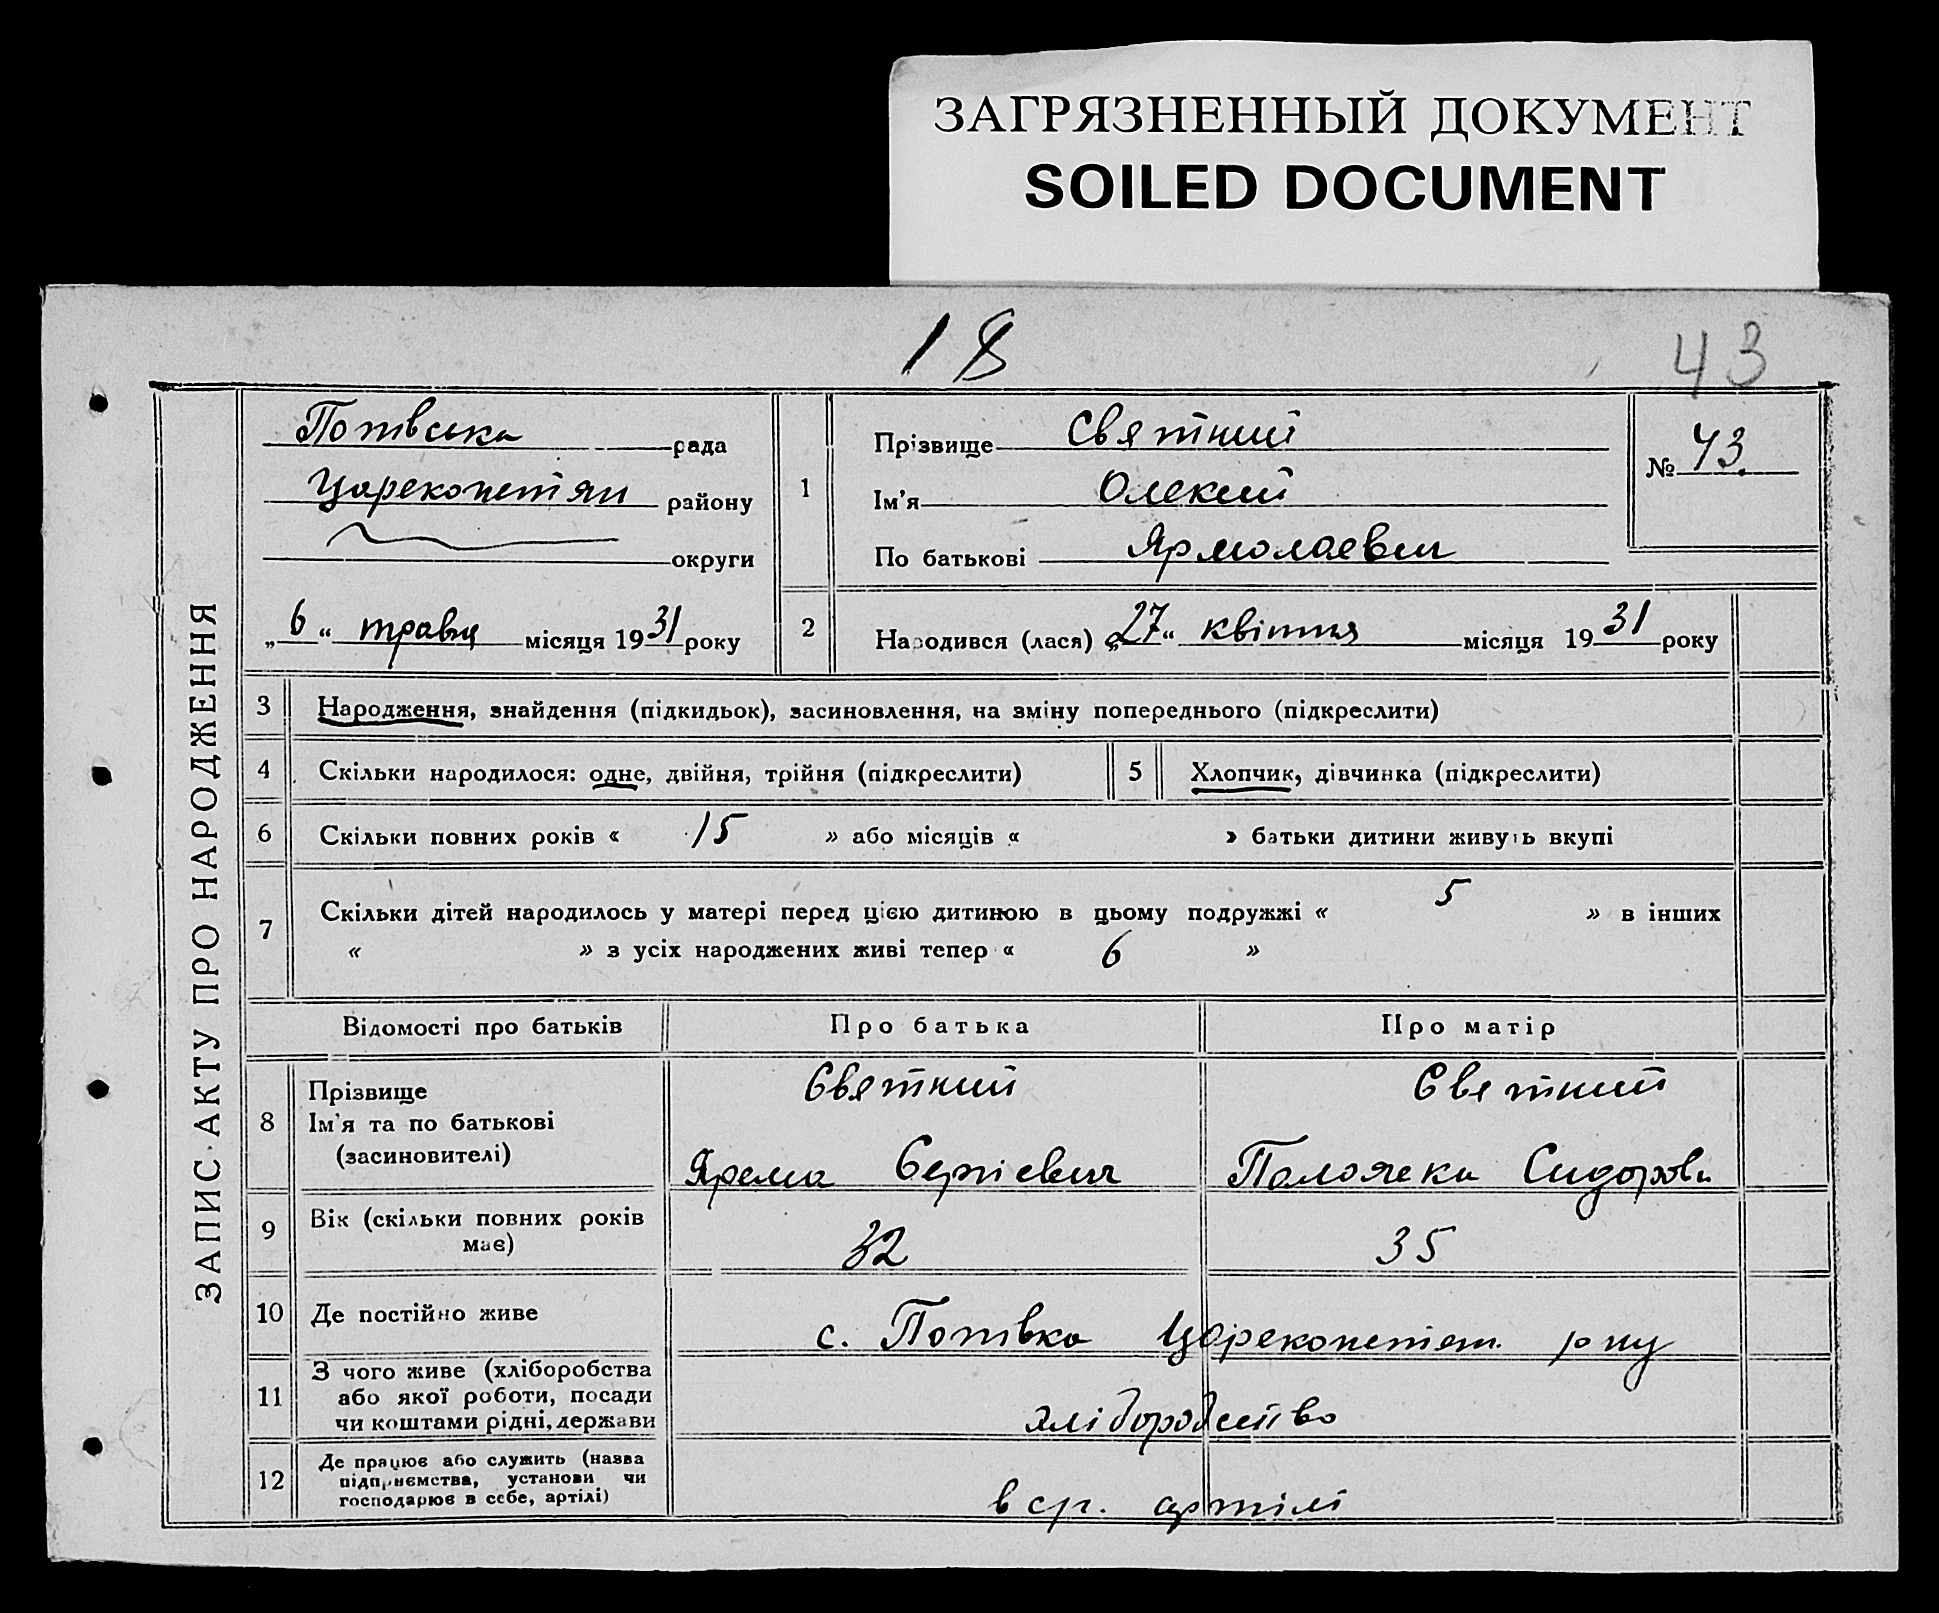 ЗАГРЯЗНЕННЫЙ ДОКУМЕНТ
SOILED DOCUMENT
18
43
ЗАПИС АКТУ ПРО НАРОДЖЕННЯ
Потівська рада
Цареконстян району
округи
„6“ травця місяця 1931 року
1
Прізвище Святний
Ім'я Олексій
По батькові Ярмолаевич
№ 43.
2
Народився (лася) „27“ квітня місяця 1931 року
3 Народження, знайдення (підкидьок), засиновлення, на зміну попереднього (підкреслити)
4 Скільки народилося: одне, двійня, трійня (підкреслити)
5 Хлопчик, дівчинка (підкреслити)
6 Скільки повних років « 15 » або місяців « » батьки дитини живуть вкупі
7 Скільки дітей народилось у матері перед цією дитиною в цьому подружжі « 5 » в інших
« » з усіх народжених живі тепер « 6 »
Відомості про батьків Про батька Про матір
8 Прізвище Святний Святний
Ім'я та по батькові
(засиновителі) Ярема Сергієвич Сидорова
9 Вік (скільки повних років
має) 32 35
10 Де постійно живе с. Потівка рну
11 З чого живе (хліборобства
або якої роботи, посади
чи коштами рідні, держави хліборобство
12 Де працює або служить (назва
підприємства, установи чи
господарює в себе, артілі) в ср. артілі